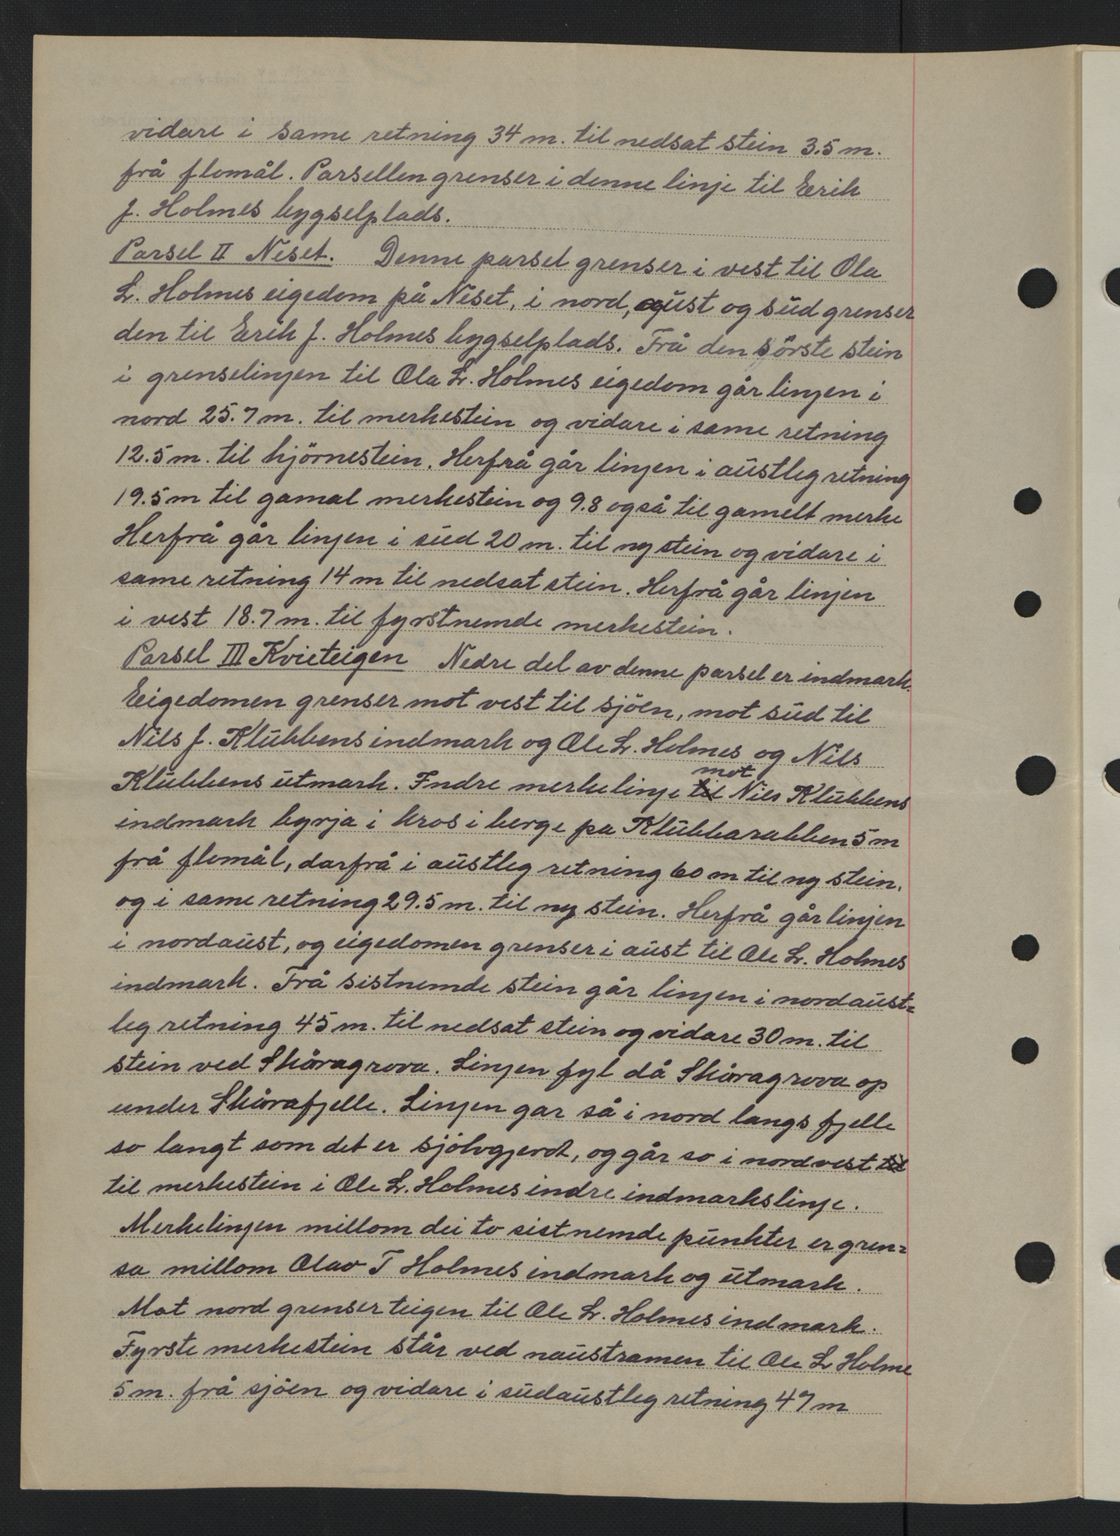 vidare i same retning 34 m. til nedsat stein 3.5 m.
frå flomål. Parsellen grenser i denne linje til Erik
J. Holmes bygselplads.
Parsel II Neset. Denne parsel grenser i vest til Ola
L. Holmes eigedom på Neset, i nord, aust og süd grenser
den til Erik J. Holmes bygselplads. Frå den störste stein
i grenselinjen til Ola L. Holmes eigedom går linjen i
nord 25.7 m. til merkestein og vidare i same retning
12.5 m. til hjörnestein. Herfrå går linjen i aüstleg retning
19.5 m til gamal merkestein og 9.8 også til gamelt merke
Herfrå går linjen i süd 20 m. til ny stein og vidare i
same retning 14 m til nedsat stein. Herfrå går linjen
i vest 18.7 m. til fyrstnemde merkestein.
Parsel III Kvieteigen Nedre del av denne parsel er indmark.
Eigedomen grenser mot vest til sjöen, mot süd til
Nils J. Klübbens indmark og Ole L. Holmes og Nils
Klübbens ütmark. Indre merkelinje mot Nils Klübbens
indmark byrja i kros i berge pa Klübbarabben 5 m
frå flomål, darfrå i aüstleg retning 60 m til ny stein.
og i same retning 29.5 m. til ny stein. Herfrå går linjen
i nordaüst, og eigedomen grenser i aüst til Ole L. Holmes
indmark. Frå sistnemde stein går linjen i nordaüst=
leg retning 45 m. til nedsat stein og vidare 30 m. til
stein ved Skåragrova. Linjen fyl då Skåragrova op
ünder Skårafjelle. Linjen gar så i nord langs fjelle
so langt som det er sjölvgjerdt, og går so i nordvest
til merkestein i Ole L. Holmes indre indmarkslinje.
Merkelinjen millom dei to sistnemde pünkter er gren=
sa millom Olav T Holmes indmark og ütmark.
Mot nord grenser teigen til Ole L. Holmes indmark.
Fyrste merkestein står ved naüstramen til Ole L Holme
5 m. frå sjöen og vidare i südaüstleg retning 47 m